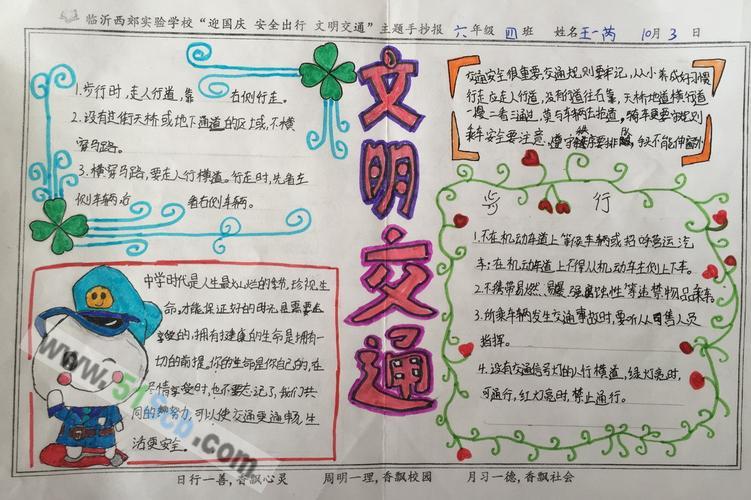 临沂西郊实验学校“迎国庆 安全出行 文明交通”主题手抄报 六年级 四班 姓名王一芮 10月3日
1.步行时,走人行道,靠右侧行走。
2.没有过街天桥或地下通道的区域,不横
穿马路。
3.横穿马路,要走人行横道。行走时,先看左
侧车辆右看右侧车辆。
文明交通
交通安全很重要,交通规则要牢记,从小养成好习惯
行走应走人行道,没有行道往右靠,天桥地道横行道
一慢二看三通过,莫与车辆去抢道。骑车更要守规则
乘车安全要注意,遵守秩序要排队,
步行
1.不在机动车道上等候车辆或招呼营运汽
车;在机动车道上不得从机动车左侧上下车。
2.不携带易燃、易爆、强腐蚀性等违禁物品乘车。
3.所乘车辆发生交通事故时,要听从司售人员
指挥。
4.没有交通信号灯的人行横道,绿灯亮时,
可通行,红灯亮时,禁止通行。
中学时代是人生最灿烂的季节,珍视生
命,才能保证好的时光是需要去
的,拥有健康的生命是拥有一
切的前提。你的生命是你自己的,在
尽情享受时,也不要忘记了,我们共
同的努力,可以使交通更通畅,生
活更安全。
日行一善,香飘心灵 周明一理,香飘校园 月习一德,香飘社会